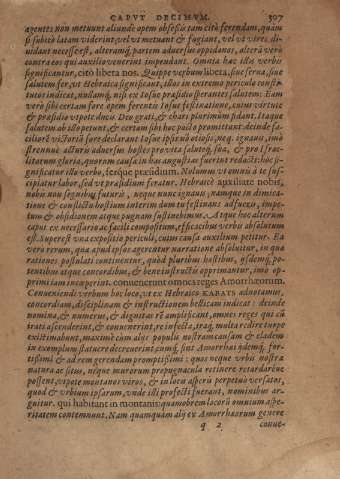 CAPVT DECIMVM. 307
agentes non metuunt aliunde opem obsessis tam citò ferendam, quàm
si subitò latam viderint: vel vt metuant & fugiant, vel vt vires di-
uidant necesse est, alteramq́; partem aduersus oppidanos, alteram verò
contra eos qui auxilio venerint impendant. Omnia hæc illis verbis
significantur, citò libera nos. Quippe verbum libera, siue serua, siue
salutem fer, vt Hebraica significant, illos in extremo periculo consti-
tutos indicet, nullamq́; nisi ex Iosue præsidio sperantes salutem: Eam
verò sibi certam fore opem ferentis Iosue festinatione, cuius virtute
& præsidio vt pote ducis Deo grati, & chari plurimùm fidant. Itaque
salutem ab illo petunt, & certam sibi hoc pacto promittunt: deinde fa-
cilem victoriã fore declarant Iosue ipsiusq́; otiosis, neq; ignauis, imò
strenuis futuris aduersus hostes pro vita salute q́; sua, & pro Israe-
litarum gloria, quorum causa in has angustias fuerint redacti: hoc si-
gnificat illo verbo, ferque præsidium. Nolumus vt omnia à te sus-
cipiatur labor, sed vt præsidium feratur. Hebraicè auxiliare nobis,
nobis non segnibus futuris, neque nunc ignauis, namque in dimica-
tione & conflictu hostium interim dum tu festinas adfuexis, impe-
tum & obsidionem atque pugnam sustinebimus. Atque hoc alterum
caput ex necessario ac facili compositum, efficacibus verbis absolutum
est. Superest vna expositio periculi, cuius causa auxilium petitur. Ea
verò rerum, qua apud ipsos agercutur narratione absoluitur, in qua
rationes postulati continentur, quòd pluribus hostibus, ijsdemq́; po-
tentibus atque concordibus, & bene instructis opprimantur, imò op-
primi iam inceperint. conuenerunt omnes reges Amorrhæorum.
Conueniendi verbum hoc loco, vt ex Hebraico KABATS adnotamus,
concordiam, disciplinam & instructionem bellicam indicat: deinde
nomina, & numerus, & dignitas rẽ amplificant, omnes reges qui cũ
iratis ascenderint, & conuenerint, re infecta, tragi, multa redire turpe
existimabunt, maximè cùm alijs populis nostram causam & cladem
in exemplum statuere decreuerint, cùmq́; sint Amorrhæi ijdemq́; for-
tissimi & ad rem gerendam promptissimi: quos neque vrbis nostra
natura ac situs, neque murorum propugnacula retinere retardaréue
possent, vtpote montanos viros, & in loca aspera perpetuò versatos,
quod & vrbium ipsarum, vnde isti profecti fuerant, nominibus ar-
guitur. qui habitant in montanis: quamobrem locorũ omnium aspe-
ritatem contemnunt. Nam quamquàm alij ex Amorrhæorum genere
q 2 conue-